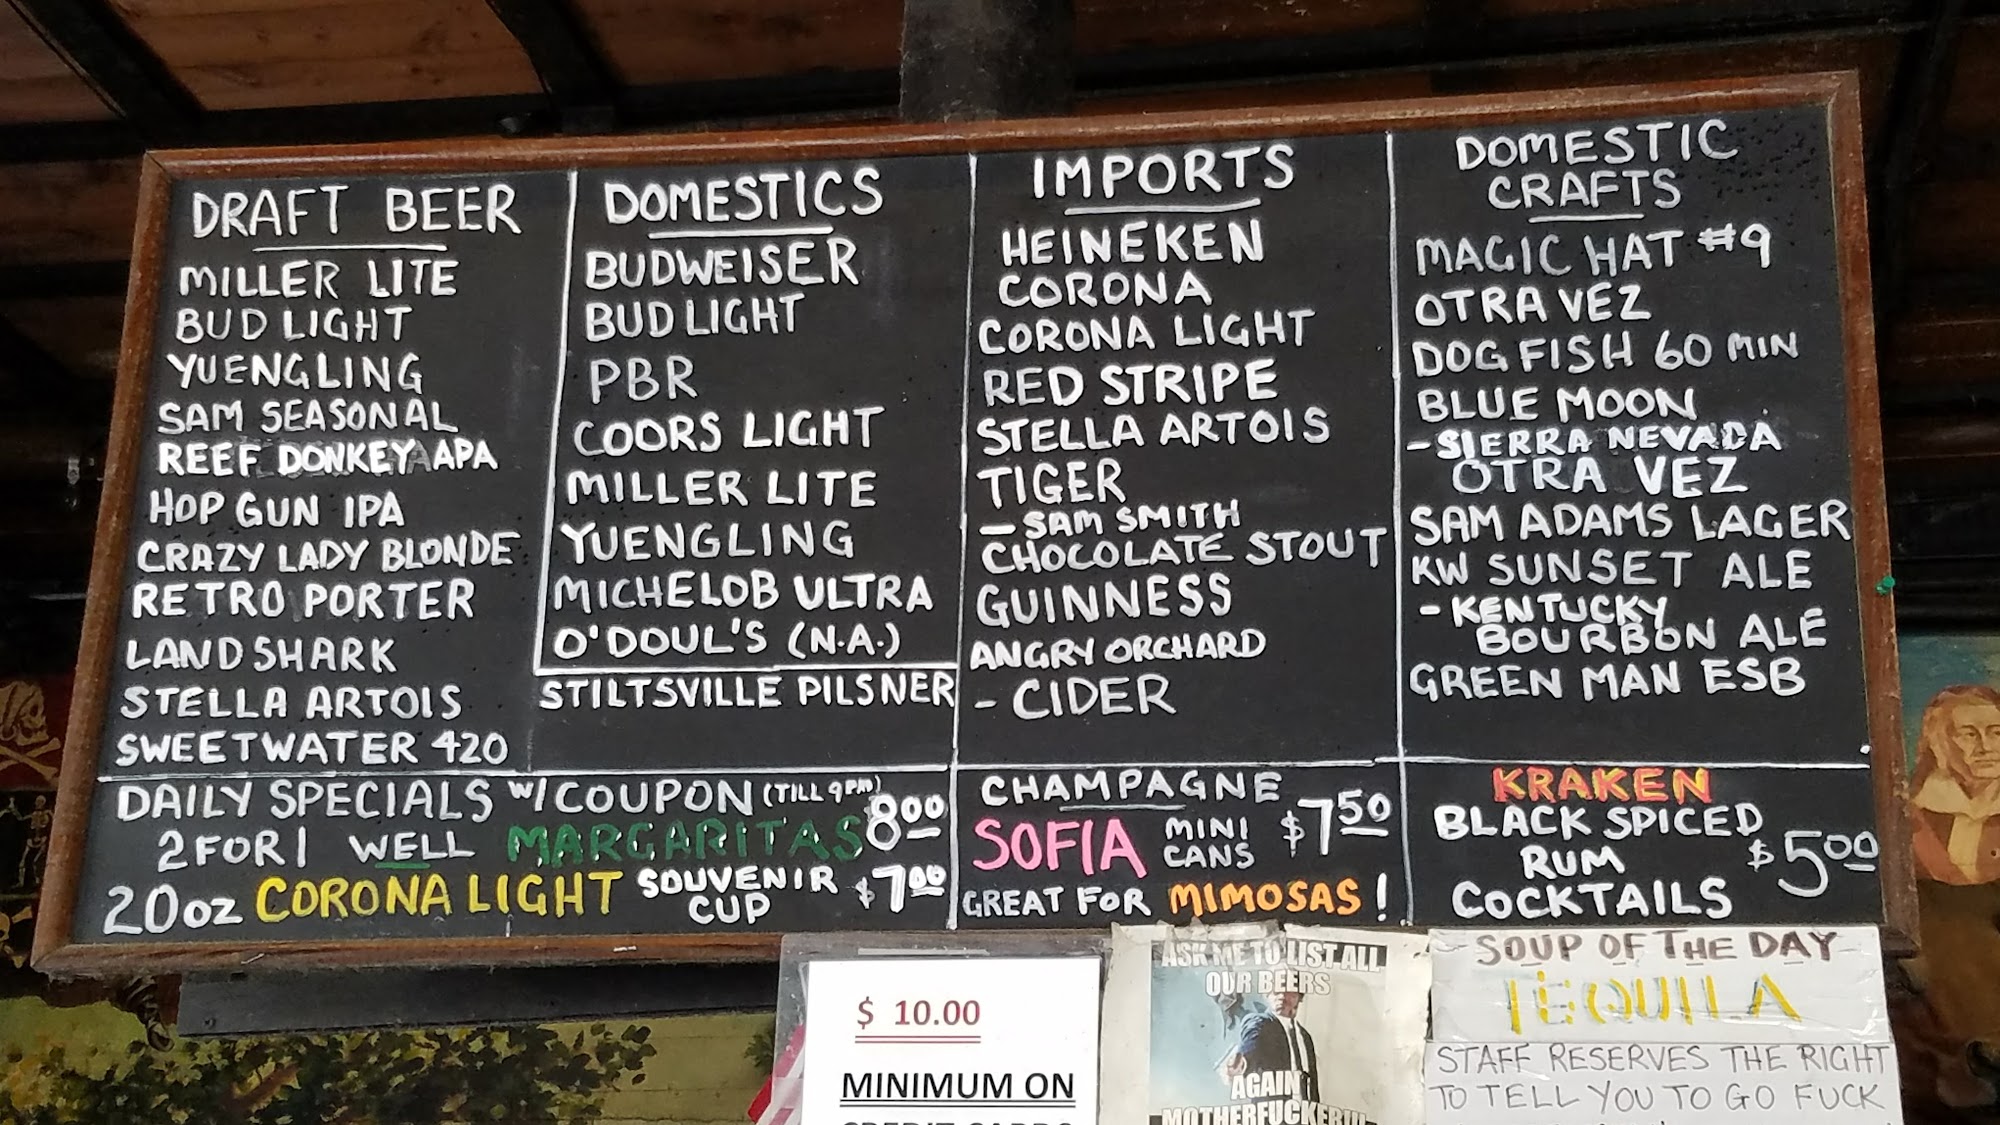 DRAFT BEER
MILLER LITE
BUD LIGHT
YUENGLING
SAM SEASONAL
REEF DONKEY APA
HOP GUN IPA
CRAZY LADY BLONDE
RETRO PORTER
LAND SHARK
STELLA ARTOIS
SWEETWATER 420
DOMESTICS
BUDWEISER
BUD LIGHT
PBR
COORS LIGHT
MILLER LITE
YUENGLING
MICHELOB ULTRA
O'DOUL'S (N.A.)
STILTSVILLE PILSNER
IMPORTS
HEINEKEN
CORONA
CORONA LIGHT
RED STRIPE
STELLA ARTOIS
TIGER
- SAM SMITH
CHOCOLATE STOUT
GUINNESS
ANGRY ORCHARD
- CIDER
DOMESTIC
CRAFTS
MAGIC HAT #9
OTRA VEZ
DOG FISH 60 MIN
BLUE MOON
- SIERRA NEVADA
OTRA VEZ
SAM ADAMS LAGER
KW SUNSET ALE
- KENTUCKY
BOURBON ALE
GREEN MAN ESB
DAILY SPECIALS W/ COUPON (TILL 9PM)
2 FOR 1 WELL MARGARITAS 8.00
20oz CORONA LIGHT SOUVENIR CUP $7.00
CHAMPAGNE
SOFIA MINI CANS $7.50
GREAT FOR MIMOSAS!
KRAKEN
BLACK SPICED
RUM $5.00
COCKTAILS
$ 10.00
MINIMUM ON
CREDIT CARDS
ASK ME TO LIST ALL
OUR BEERS
AGAIN
MOTHERFUCKER!!!
SOUP OF THE DAY
TEQUILA
STAFF RESERVES THE RIGHT
TO TELL YOU TO GO FUCK